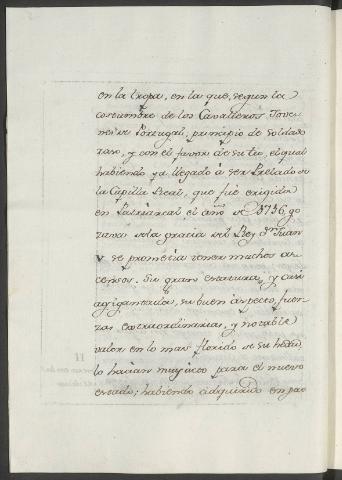 en la tropa, en la que, segun la
costumbre de los Cavalleros Jove-
nes de Portugal, principio de soldado
raso, y con el favor de su tio, el qual
habiendo ya llegado à ser Prelado de
la Capilla Real, que fuè erigida
en Patriarcal el año de 1736, go
zava de la gracia del Rey Dn. Juan
V se prometia tener muchos as-
censos. Su gran estatura, y casi
agigantada, su buen aspecto, fuer-
zas extraordinarias, y notable
valor en lo mas florido de su hedad
lo hacian muy acto para el nuevo
estado; habiendo adquirido en poc